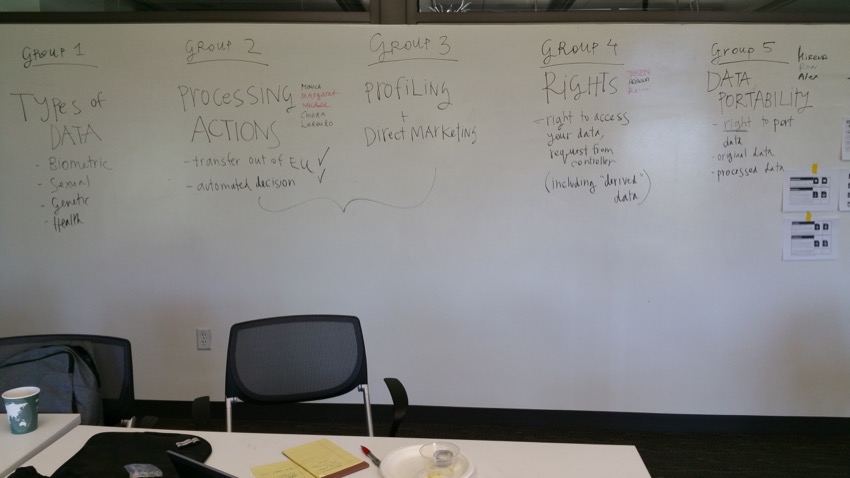 Group 1
Types of
DATA
- Biometric
- Sexual
- Genetic
- Health
Group 2
PROCESSING
ACTIONS
- transfer out of EU ✓
- automated decision ✓
MARGARET
CHIARA
LORENZO
Group 3
PROFILING
+
DIRECT MARKETING
GROUP 4
RIGHTS
- right to access
your data,
request from
controller
(including "derived"
data)
Group 5
Alex
DATA
PORTABILITY
- right to port
data
- original data
- processed data